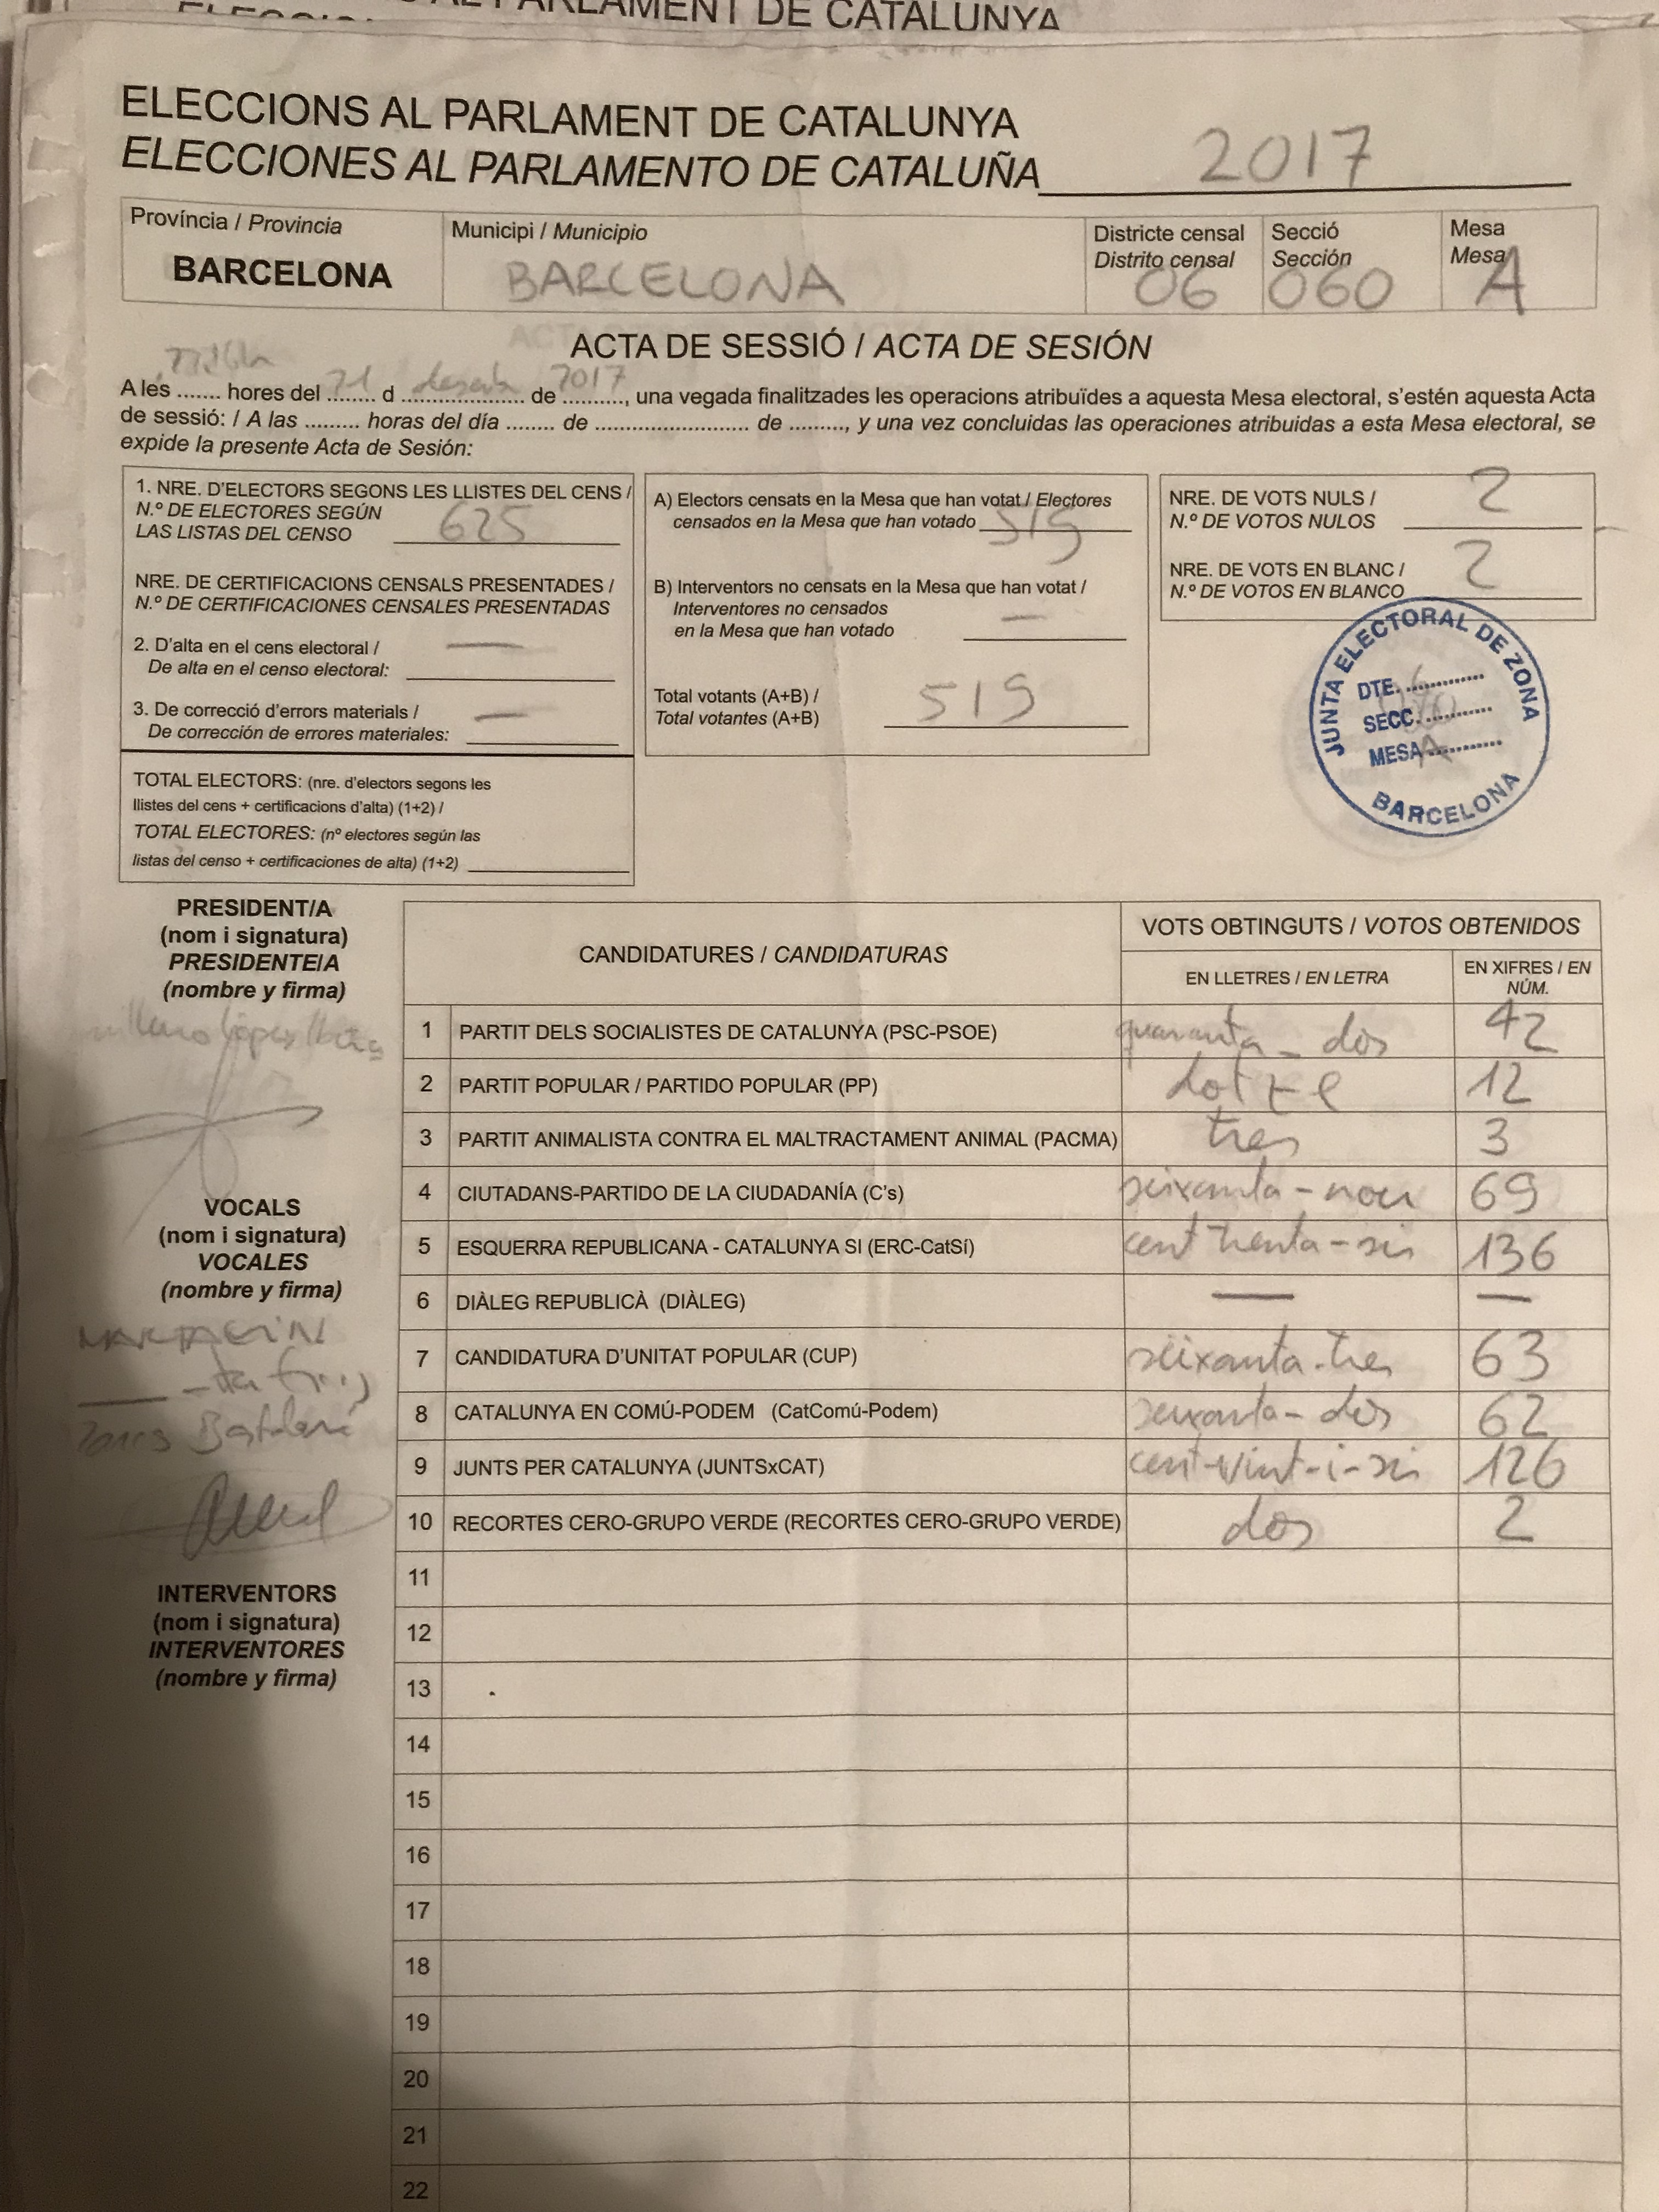 AL PARLAMENT DE CATALUNYA
ELECCIONS AL PARLAMENT DE CATALUNYA
ELECCIONES AL PARLAMENTO DE CATALUÑA 2017
Província / Provincia
BARCELONA
Municipi / Municipio
BARCELONA
Districte censal
Distrito censal
06
Secció
Sección
060
Mesa
Mesa
A
ACTA DE SESSIÓ / ACTA DE SESIÓN
A les ....... hores del 21 d desembre de 2017, una vegada finalitzades les operacions atribuïdes a aquesta Mesa electoral, s'estén aquesta Acta
de sessió: / A las ......... horas del día ........ de ....................... de ........., y una vez concluidas las operaciones atribuidas a esta Mesa electoral, se
expide la presente Acta de Sesión:
1. NRE. D'ELECTORS SEGONS LES LLISTES DEL CENS /
N.º DE ELECTORES SEGÚN
LAS LISTAS DEL CENSO 625
NRE. DE CERTIFICACIONS CENSALS PRESENTADES /
N.º DE CERTIFICACIONES CENSALES PRESENTADAS
2. D'alta en el cens electoral /
De alta en el censo electoral: —
3. De correcció d'errors materials /
De corrección de errores materiales: —
TOTAL ELECTORS: (nre. d'electors segons les
llistes del cens + certificacions d'alta) (1+2) /
TOTAL ELECTORES: (nº electores según las
listas del censo + certificaciones de alta) (1+2)
A) Electors censats en la Mesa que han votat / Electores
censados en la Mesa que han votado 519
B) Interventors no censats en la Mesa que han votat /
Interventores no censados
en la Mesa que han votado —
Total votants (A+B) /
Total votantes (A+B) 519
NRE. DE VOTS NULS /
N.º DE VOTOS NULOS 2
NRE. DE VOTS EN BLANC /
N.º DE VOTOS EN BLANCO 2
JUNTA ELECTORAL DE ZONA
DTE. 6
SECC. 060
MESA A
BARCELONA
PRESIDENT/A
(nom i signatura)
PRESIDENTE/A
(nombre y firma)
VOCALS
(nom i signatura)
VOCALES
(nombre y firma)
INTERVENTORS
(nom i signatura)
INTERVENTORES
(nombre y firma)
CANDIDATURES / CANDIDATURAS
VOTS OBTINGUTS / VOTOS OBTENIDOS
EN LLETRES / EN LETRA
EN XIFRES / EN
NÚM.
1 PARTIT DELS SOCIALISTES DE CATALUNYA (PSC-PSOE) quaranta-dos 42
2 PARTIT POPULAR / PARTIDO POPULAR (PP) dotze 12
3 PARTIT ANIMALISTA CONTRA EL MALTRACTAMENT ANIMAL (PACMA) tres 3
4 CIUTADANS-PARTIDO DE LA CIUDADANÍA (C's) seixanta-nou 69
5 ESQUERRA REPUBLICANA - CATALUNYA SI (ERC-CatSí) cent trenta-sis 136
6 DIÀLEG REPUBLICÀ (DIÀLEG) — —
7 CANDIDATURA D'UNITAT POPULAR (CUP) seixanta-tres 63
8 CATALUNYA EN COMÚ-PODEM (CatComú-Podem) seixanta-dos 62
9 JUNTS PER CATALUNYA (JUNTSxCAT) cent-vint-i-sis 126
10 RECORTES CERO-GRUPO VERDE (RECORTES CERO-GRUPO VERDE) dos 2
11
12
13
14
15
16
17
18
19
20
21
22